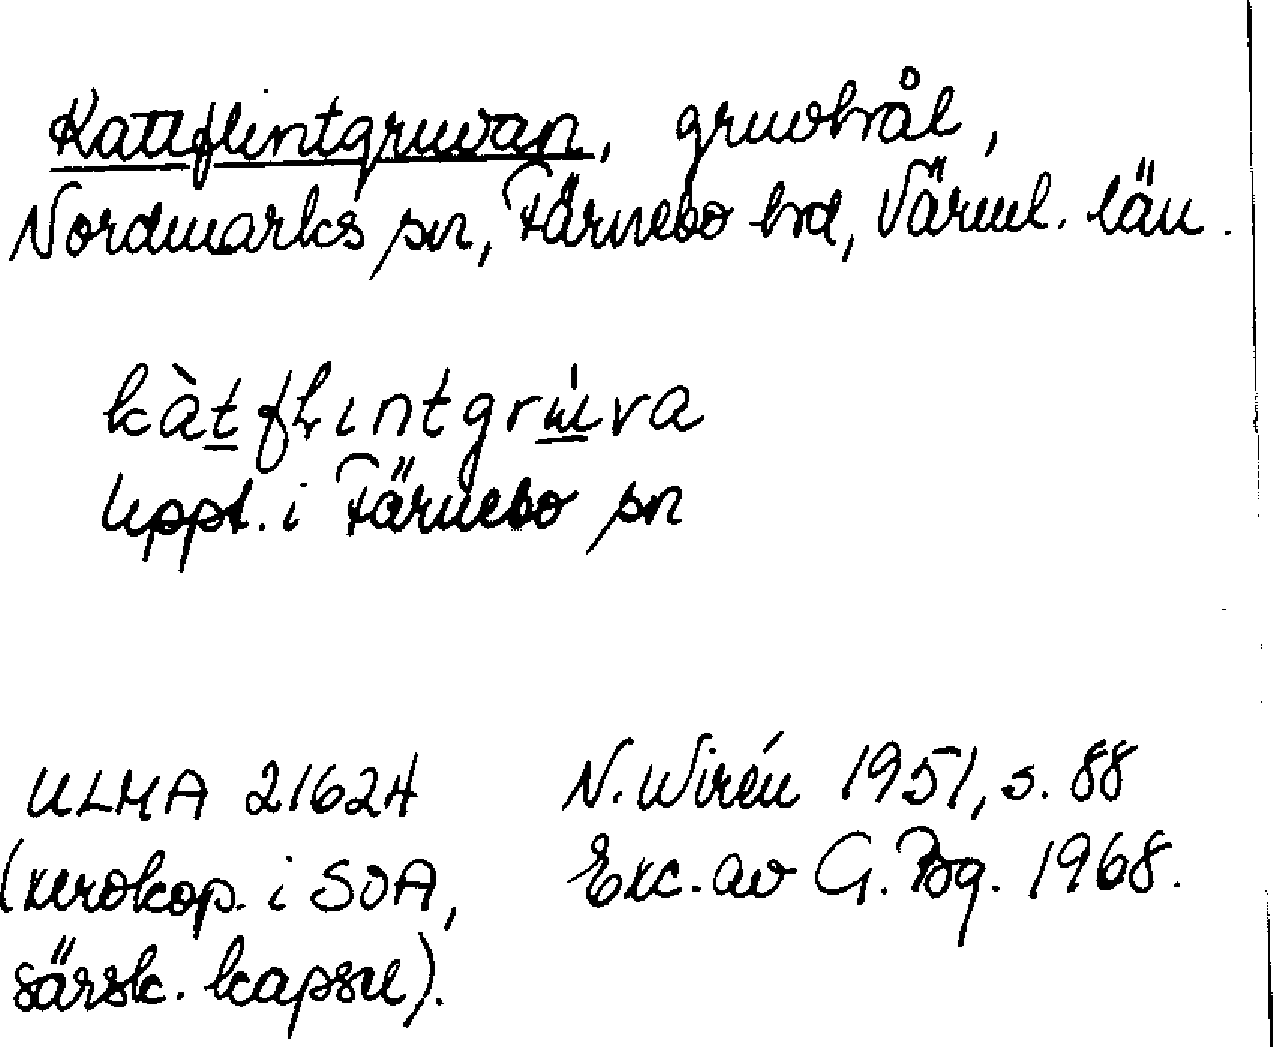 Kattflintgruvan, gruvhål,
Nordmarks sn, Färnebo hd, Värml. län.
kàtflıntgrúva
Uppt. i Färnebo sn
ULMA 21624 N. Wirén 1951, s. 88
(xerokop. i SOA, Exc. av G. Bg. 1968.
särsk. kapsel).